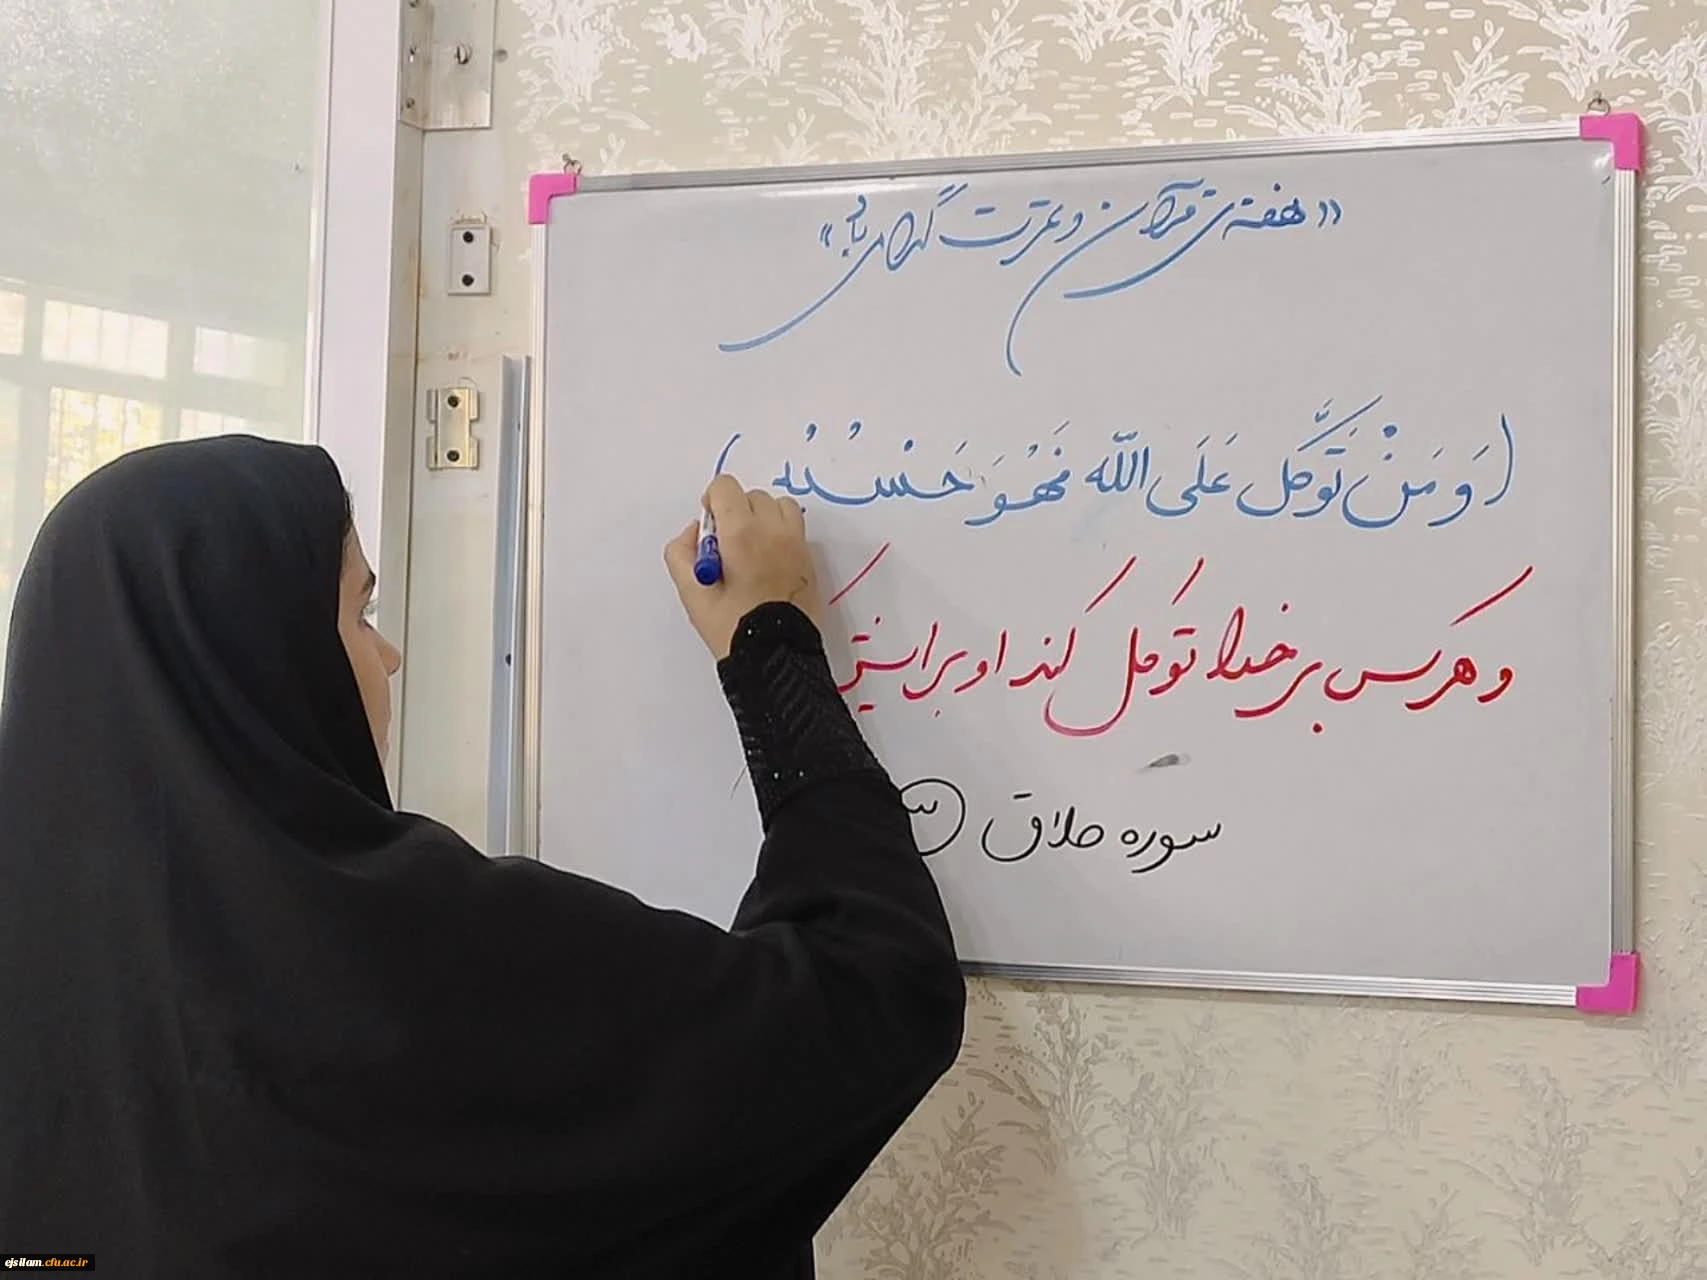 «هفته‌ی قرآن و عترت گرامی باد»
(وَ مَنْ تَوَکَّل عَلَی اللّه فَهُوَ حَسْبُهُ)
و هرکس بر خدا توکل کند او برایش
سوره طلاق ۳
ejsilam.cfu.ac.ir